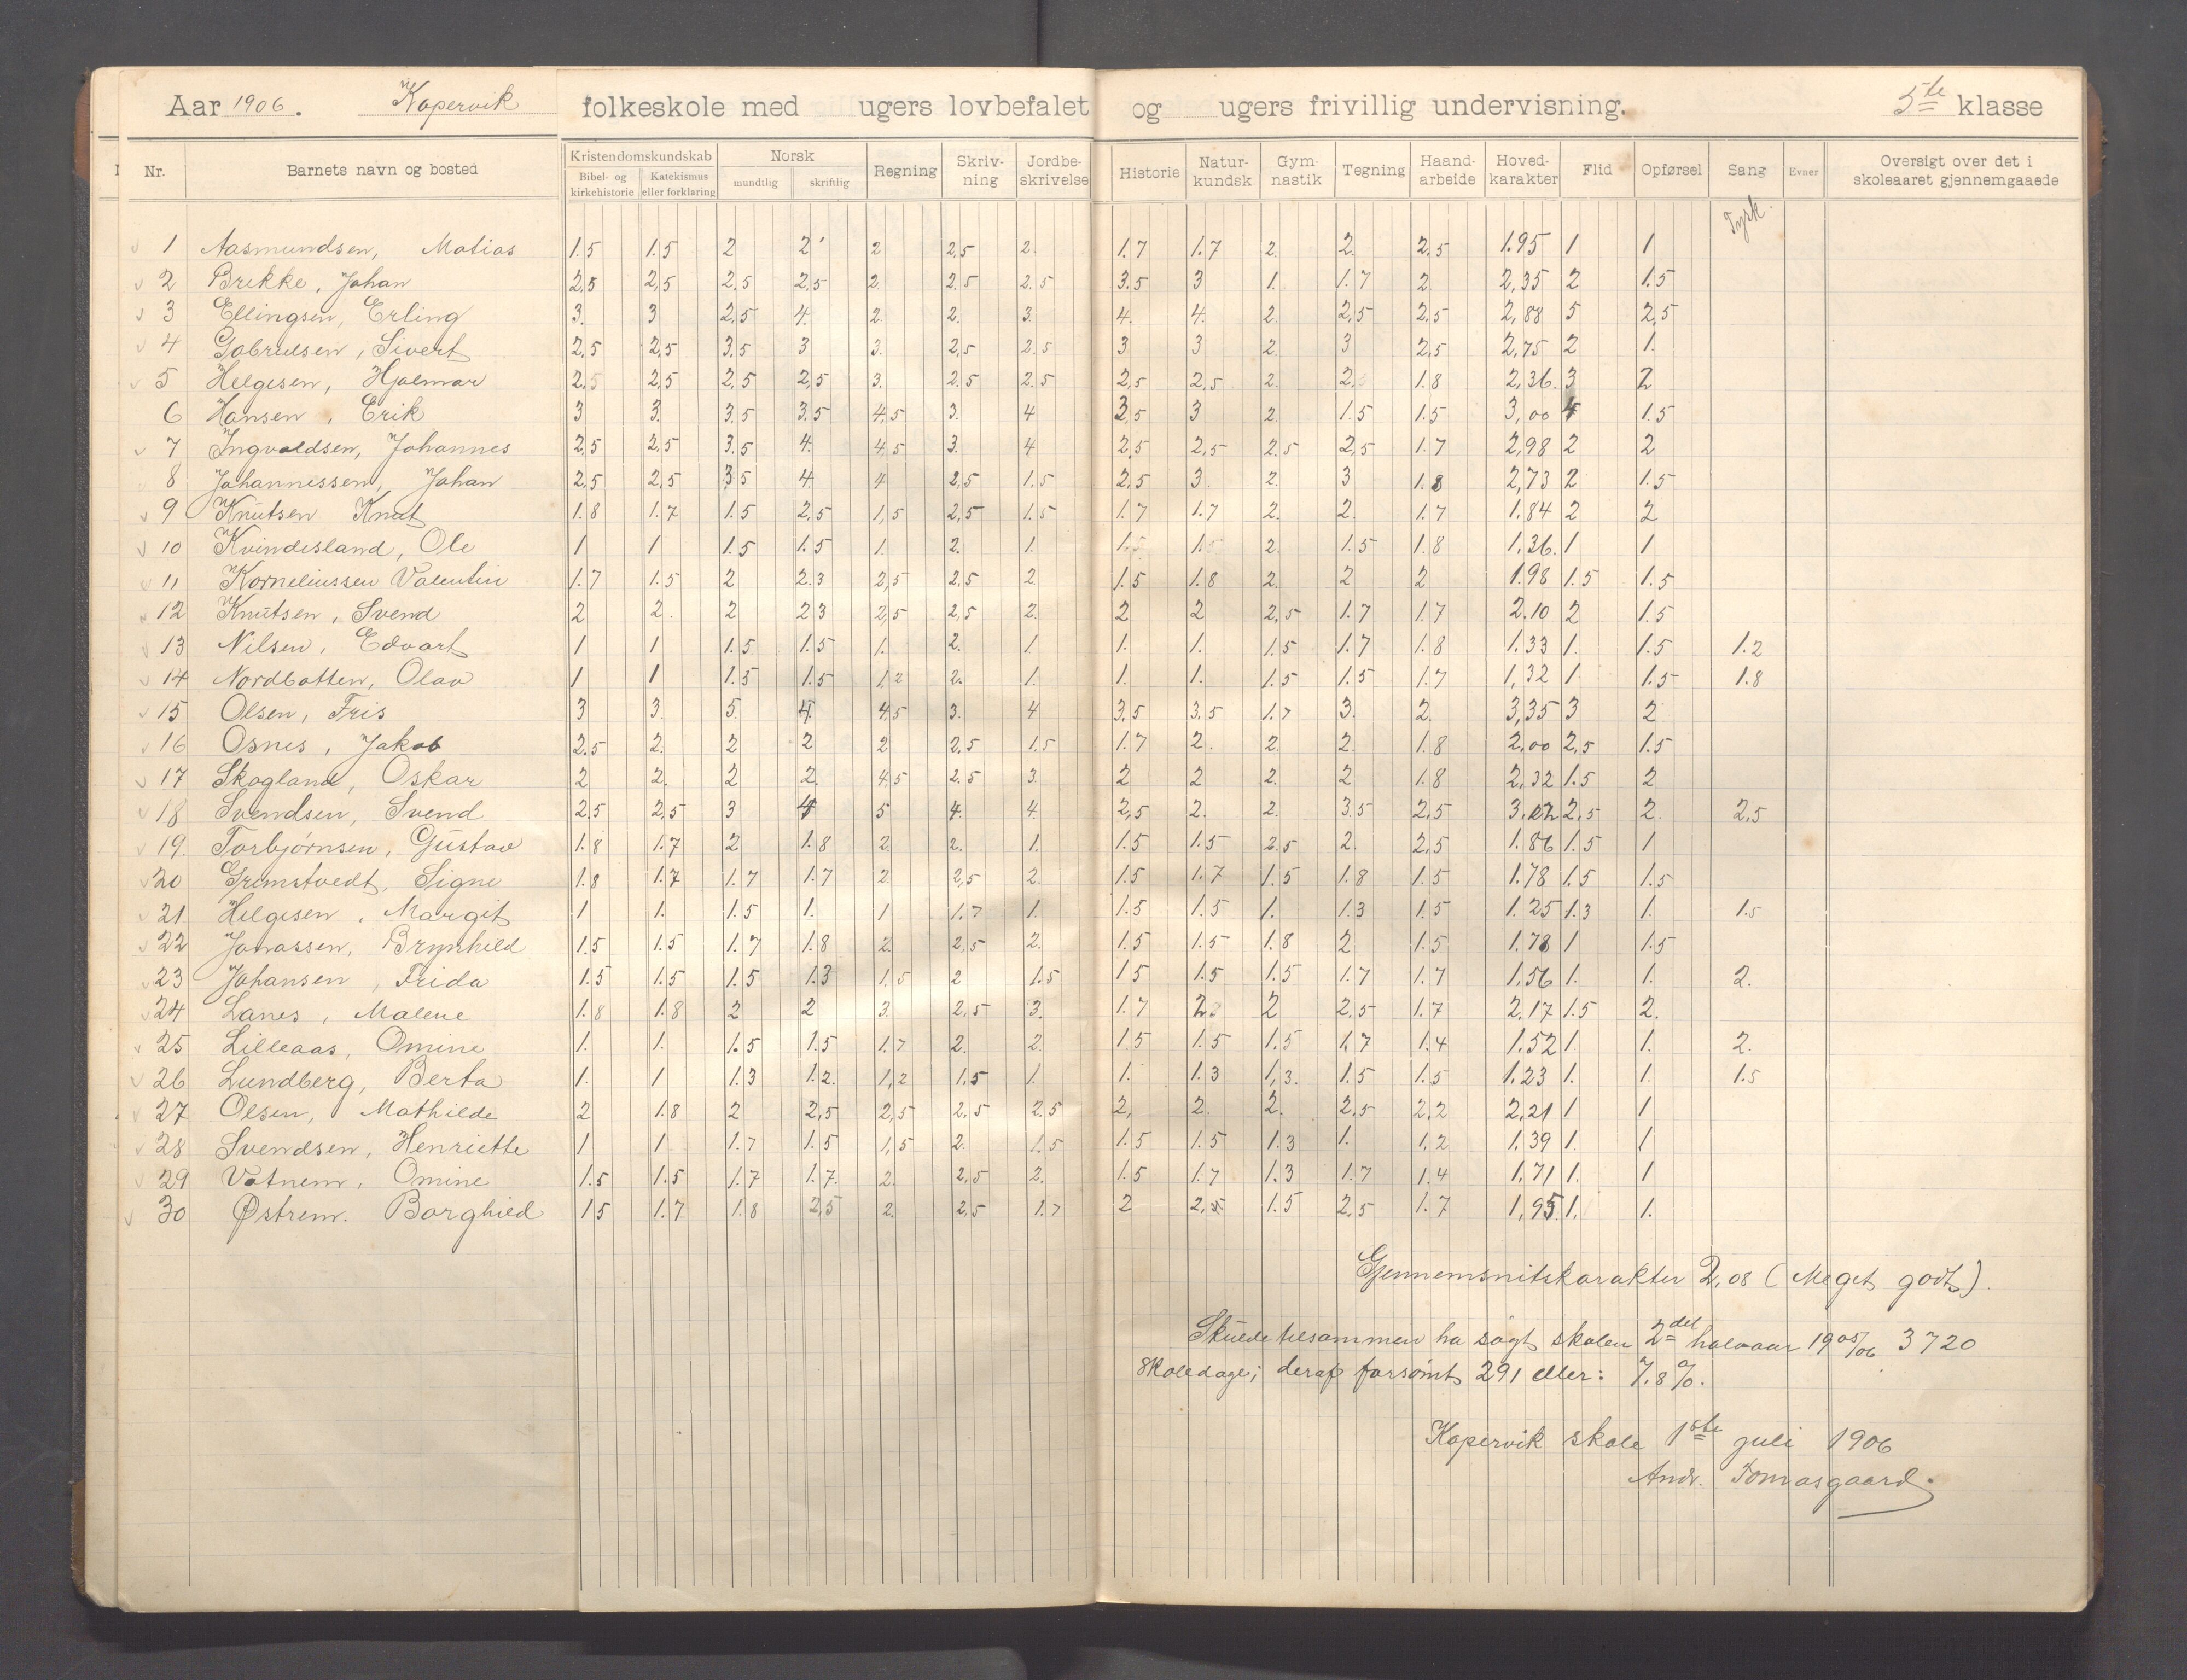 Aar 1906. Kopervik folkeskole med ugers lovbefalet og ugers frivillig undervisning. 5te klasse
Nr. Barnets navn og bosted Kristendomskundskab Norsk Regning Skriv-ning Jordbe-skrivelse Historie Natur-kundsk Gym-nastik Tegning Haand-arbeide Hoved-karakter Flid Opførsel Sang Evner Oversigt over det i skoleaaret gjennemgaaede
Bibel- og kirkehistorie Katekismus eller forklaring mundtlig skriftlig
Tysk.
1 Aasmundsen, Matias 1.5 1.5 2 2 2 2,5 2. 1.7 1.7 2. 2. 2,5 1.95 1 1
2 Brekke, Johan 2,5 2,5 2,5 2.5 2. 2.5 2.5 3.5 3 1. 1.7 2. 2,35 2 1.5
3 Ellingsen, Erling 3. 3 2,5 4. 2. 2. 3. 4. 4. 2. 2,5 2,5 2,88 5 2,5
4 Gabrielsen, Sivert 2,5 2,5 3,5 3 3. 2,5 2.5 3 3 2. 3 2,5 2,75 2 1.
5 Helgesen, Hjalmar 2.5 2,5 2,5 2,5 3. 2.5 2.5 2,5 2,5 2. 2. 1.8 2,36. 3 2
6 Hansen, Erik 3 3. 3.5 3.5 4,5 3. 4 3,5 3 2. 1.5 1.5 3,00 4 1.5
7 Ingvaldsen, Johannes 2,5 2,5 3.5 4. 4,5 3. 4 2,5 2,5 2.5 2,5 1.7 2,98 2 2
8 Johannessen, Johan 2,5 2,5 3.5 4. 4 2,5 1.5 2,5 3. 2. 3 1.8 2,73 2 1.5
9 Knutsen Knut 1.8 1.7 1.5 2.5 1,5 2,5 1.5 1.7 1.7 2. 2. 1.7 1.84 2 2
10 Kvindesland, Ole 1 1 1.5 1.5 1. 2. 1. 1.5 1.5 2. 1.5 1.8 1.36. 1 1
11 Korneliussen Valentin 1.7 1.5 2 2.3 2,5 2.5 2. 1.5 1.8 2. 2 2 1.98 1.5 1.5
12 Knutsen, Svend 2 2. 2 2 3 2,5 2,5 2. 2 2 2,5 1.7 1.7 2.10 2 1.5
13 Nilsen, Edvart 1 1 1.5 1.5 1. 2. 1 1. 1. 1.5 1.7 1.8 1.33 1. 1.5 1.2
14 Nordbotten, Olav 1 1 1.5 1.5 1.2 2. 1. 1. 1. 1.5 1.5 1.7 1,32 1 1.5 1.8
15 Olsen, Fris 3 3. 5. 4. 4,5 3. 4 3,5 3.5 1.7 3. 2. 3,35 3 2
16 Osnes, Jakob 2.5 2. 2 2 2 2,5 1.5 1.7 2. 2. 2. 1.8 2,00 2,5 1.5
17 Skogland, Oskar 2 2. 2 2. 4,5 2.5 3. 2 2 2. 2 1.8 2,32 1.5 2
18 Svendsen, Svend 2.5 2,5 3 4 5 4. 4. 2,5 2. 2. 3.5 2,5 2,5 2. 2,5
19. Torbjørnsen, Gustav 1.8 1.7 2 1.8 2. 2. 1. 1.5 1.5 2.5 2. 2,5 1.86 1.5 1
20 Grimstvedt, Signe 1.8 1.7 1.7 1.7 2. 2,5 2. 1.5 1.7 1.5 1.8 1.5 1.78 1.5 1.5
21 Helgesen, Margit 1 1. 1.5 1. 1 1.7 1. 1.5 1.5 1. 1.3 1.5 1.25 1.3 1. 1.5
22 Jonassen, Brynhild 1.5 1.5 1.7 1.8 2. 2,5 2. 1.5 1.5 1.8 2. 1.5 1.78 1 1.5
23 Johansen, Frida 1.5 1.5 1.5 1.3 1.5 2 1.5 1 5 1.5 1.5 1.7 1.7 1,56 1. 1. 2.
24 Lanes, Malene 1.8 1.8 2 2 3. 2,5 3. 1.7 2 2 2.5 1.7 2.17 1.5 2.
25 Lilleaas, Omine 1. 1. 1.5 1.5 1.7 2. 2. 1.5 1.5 1.5 1.7 1.4 1.52 1. 1. 2.
26 Lundberg, Berta 1. 1 1.3 1.2. 1,2 1.5 1. 1. 1.3 1,3. 1.5 1.5 1.23 1. 1. 1.5
27 Olsen, Mathilde 2 1.8 2 2,5 2,5 2.5 2.5 2, 2. 2. 2.5 2,2 2,21 1 1
28 Svendsen, Henriette 1 1 1.7 1.5 1,5 2. 1.5 1.5 1.5 1.3 1. 1,2 1,39 1. 1
29 Vatnem, Omine 1.5 1.5 1.7 1.7. 2. 2,5 2. 1.5 1.7 1.3 1.7 1.4 1.71 1. 1
30 Østrem. Borghild 1 5 1.7 1.8 2,5 2. 2,5 1.7 2 2,5 1.5 2,5 1.7 1,95. 1. 1.
Gjennemsnitskarakter 2,08 (Meget godt).
tilsammen ha søgt skolen 2del halvaar 1905/06 3720
skoledage; deraf forsømt 291 eller: 7.8%.
Kopervik skole 1ste juli 1906
Andr. Tomasgaard.